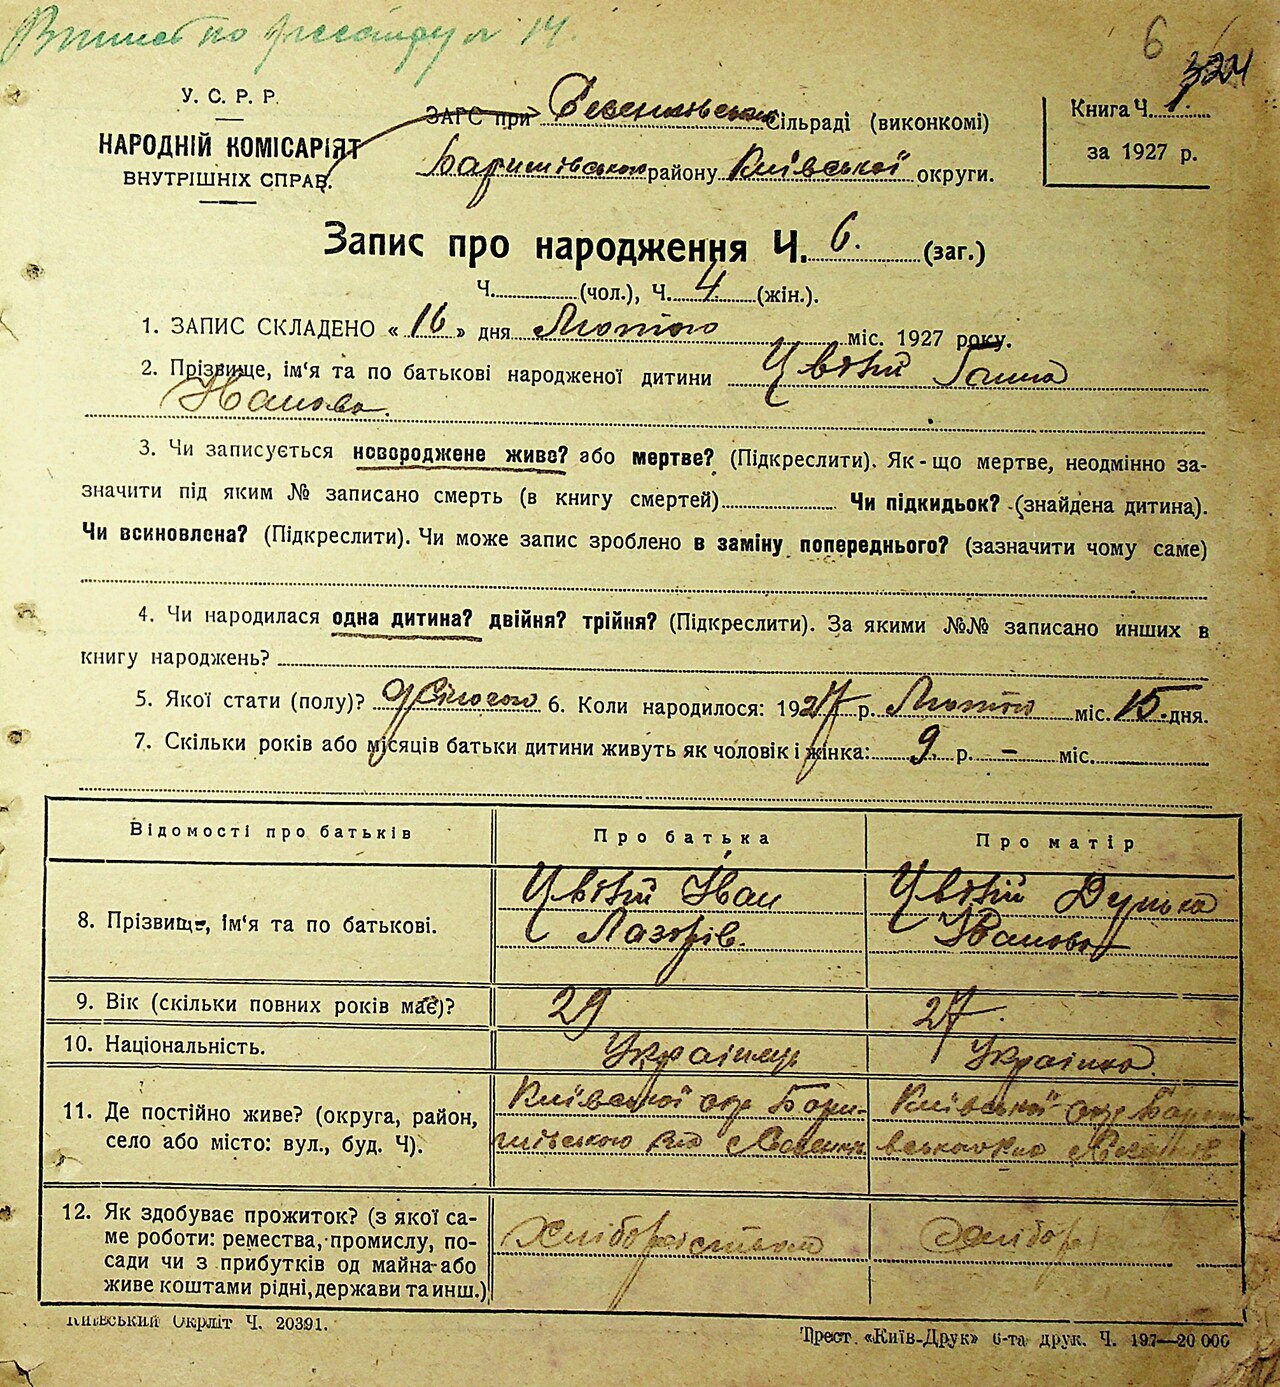 6
324
У. С. Р. Р.
НАРОДНІЙ КОМІСАРІЯТ
ВНУТРІШНІХ СПРАВ.
ЗАГС при Сільраді (виконкомі)
Баришівського району Київської округи.
Книга Ч. 1.
за 1927 р.
Запис про народження Ч. 6. (заг.)
Ч. (чол.), Ч. 4 (жін.).
1. ЗАПИС СКЛАДЕНО « 16 » дня Лютого міс. 1927 року.
2. Прізвище, ім'я та по батькові народженої дитини Цвітий Ганна
Іванова.
3. Чи записується новороджене живе? або мертве? (Підкреслити). Як-що мертве, неодмінно за-
значити під яким № записано смерть (в книгу смертей) Чи підкидьок? (знайдена дитина).
Чи всиновлена? (Підкреслити). Чи може запис зроблено в заміну попереднього? (зазначити чому саме)
4. Чи народилася одна дитина? двійня? трійня? (Підкреслити). За якими №№ записано инших в
книгу народжень?
5. Якої стати (полу)? Жіночого 6. Коли народилося: 1927 р. Лютого міс. 15. дня.
7. Скільки років або місяців батьки дитини живуть як чоловік і жінка: 9. р. – міс.
Відомості про батьків Про батька Про матір
8. Прізвище, ім'я та по батькові. Цвітий Іван Цвітий Дунька
Лазорів. Іванова
9. Вік (скільки повних років має)? 29 27.
10. Національність. Українець Українка.
11. Де постійно живе? (округа, район, Київської окр Бари- Київської окр Бариші-
село або місто: вул., буд. Ч). шівського
12. Як здобуває прожиток? (з якої са-
ме роботи: ремества, промислу, по- Хліборобством Хлібор
сади чи з прибутків од майна або
живе коштами рідні, держави та инш.)
Київський Окрліт Ч. 20391.
Трест «Київ-Друк» 6-та друк. Ч. 197—20 000